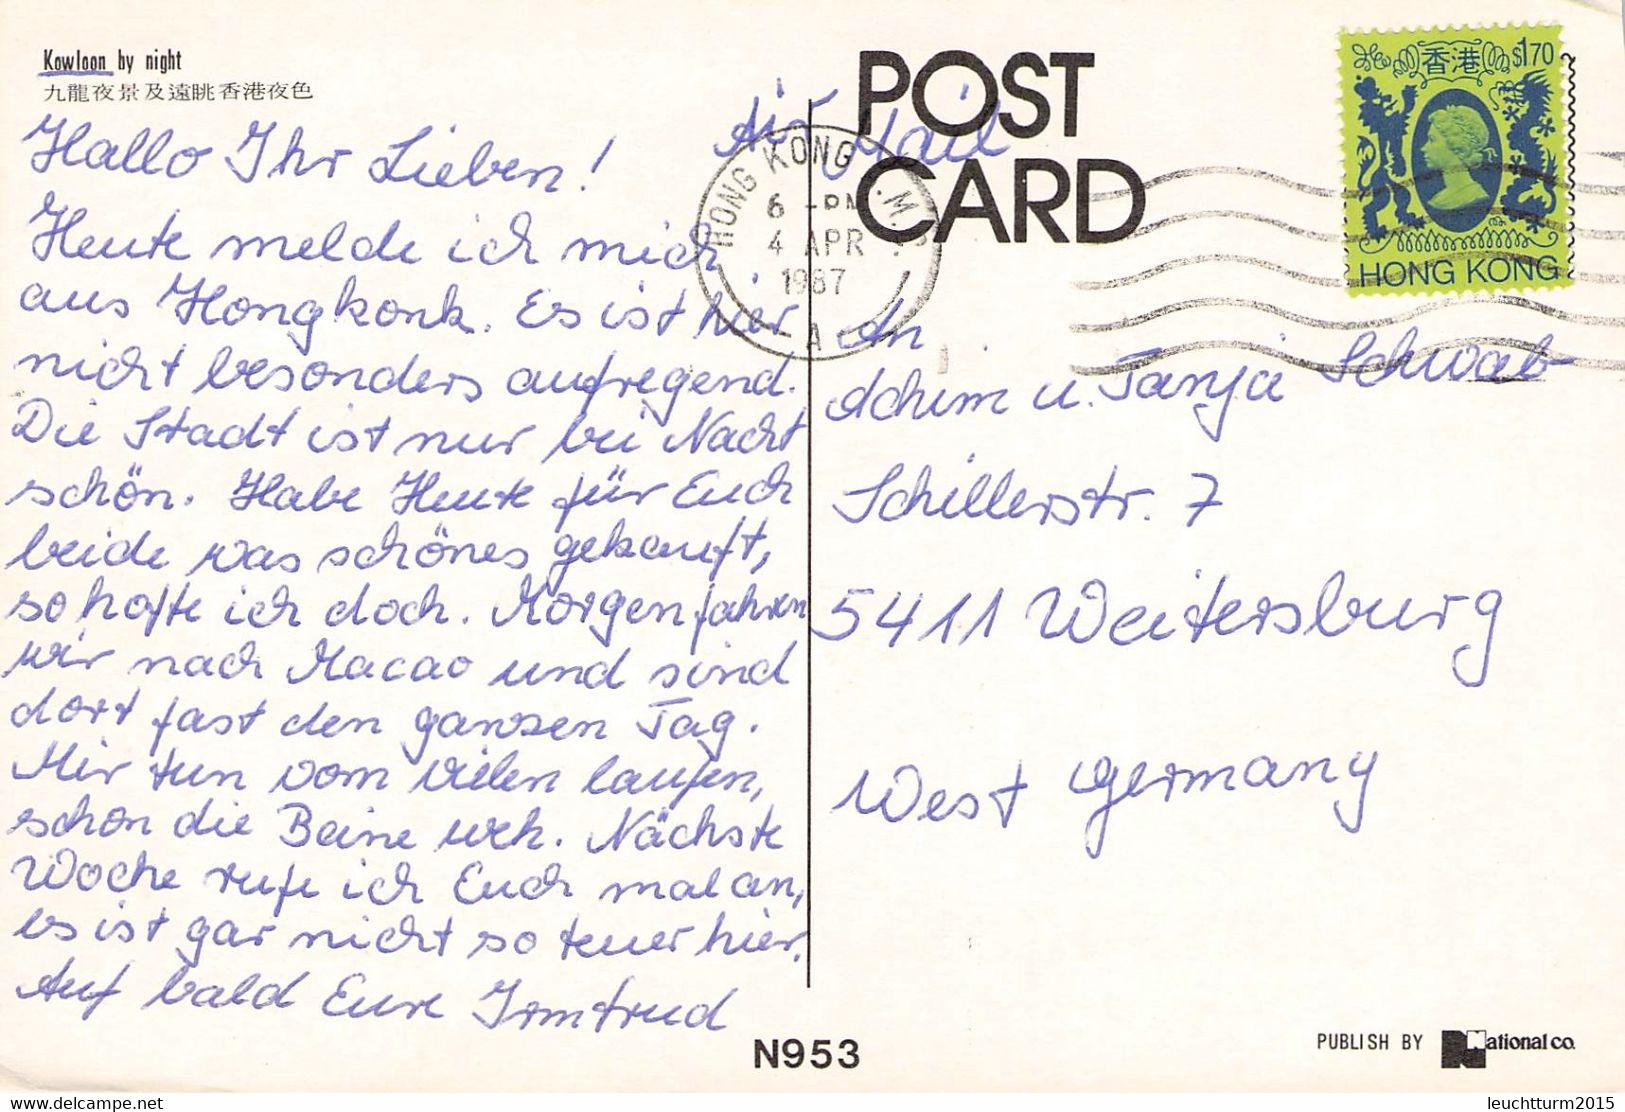 Kowloon by night
九龍夜景及遠眺香港夜色
Hallo Ihr Lieben!
Heute melde ich mich
aus Hongkonk. Es ist hier
nicht besonders aufregend.
Die Stadt ist nur bei Nacht
schön. Habe Heute für Euch
beide was schönes gekauft,
so hoffe ich doch. Morgen fahren
wir nach Macao und sind
dort fast den ganzen Tag.
Mir tun vom vielen laufen,
schon die Beine weh. Nächste
Woche rufe ich Euch mal an,
es ist gar nicht so teuer hier.
Auf bald Eure Irmtrud
Air Mail
POST
CARD
HONG KONG
6 - PM
4 APR
1987
A
香港 $1.70
HONG KONG
An
Achim u. Tanja Schwab
Schillerstr. 7
5411 Weitersburg
West Germany
N953
PUBLISH BY National co.
delcampe.net
leuchtturm2015